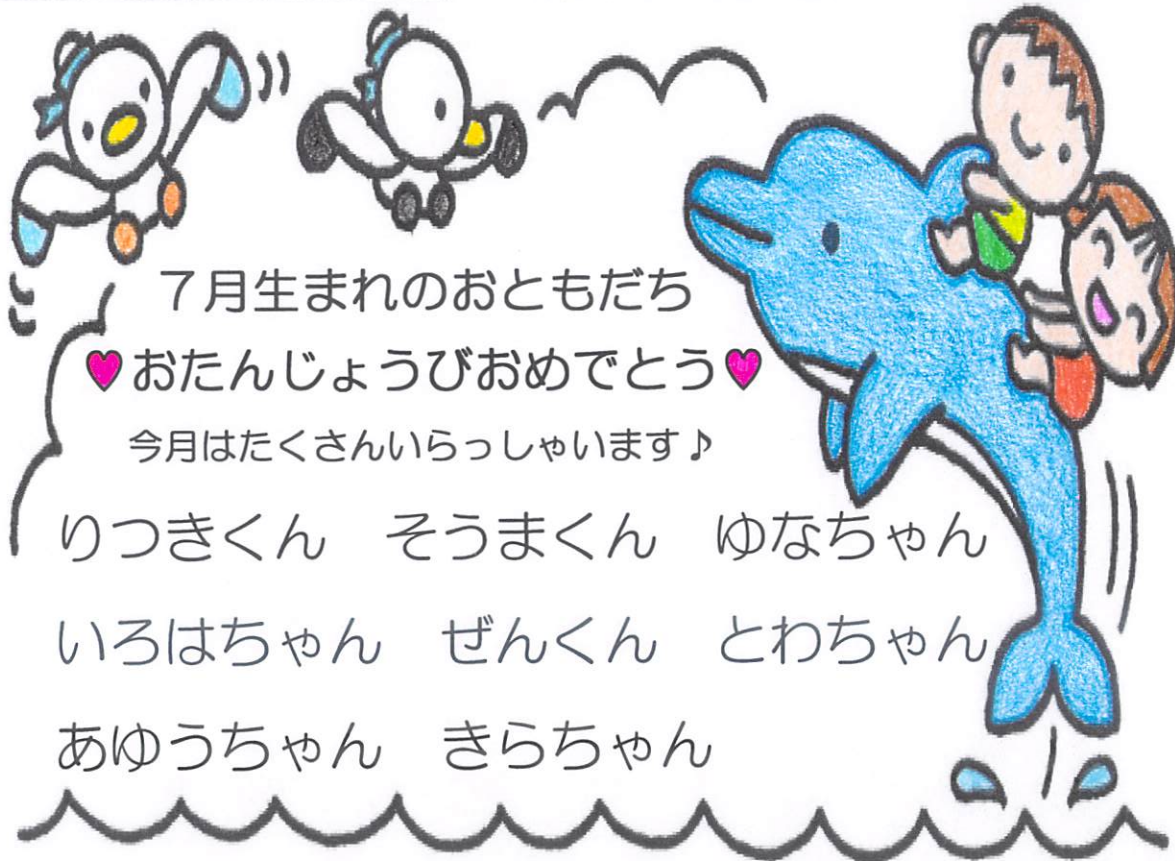 ７月生まれのおともだち
♥おたんじょうびおめでとう♥
今月はたくさんいらっしゃいます♪
りつきくん　そうまくん　ゆなちゃん
いろはちゃん　ぜんくん　とわちゃん
あゆうちゃん　きらちゃん